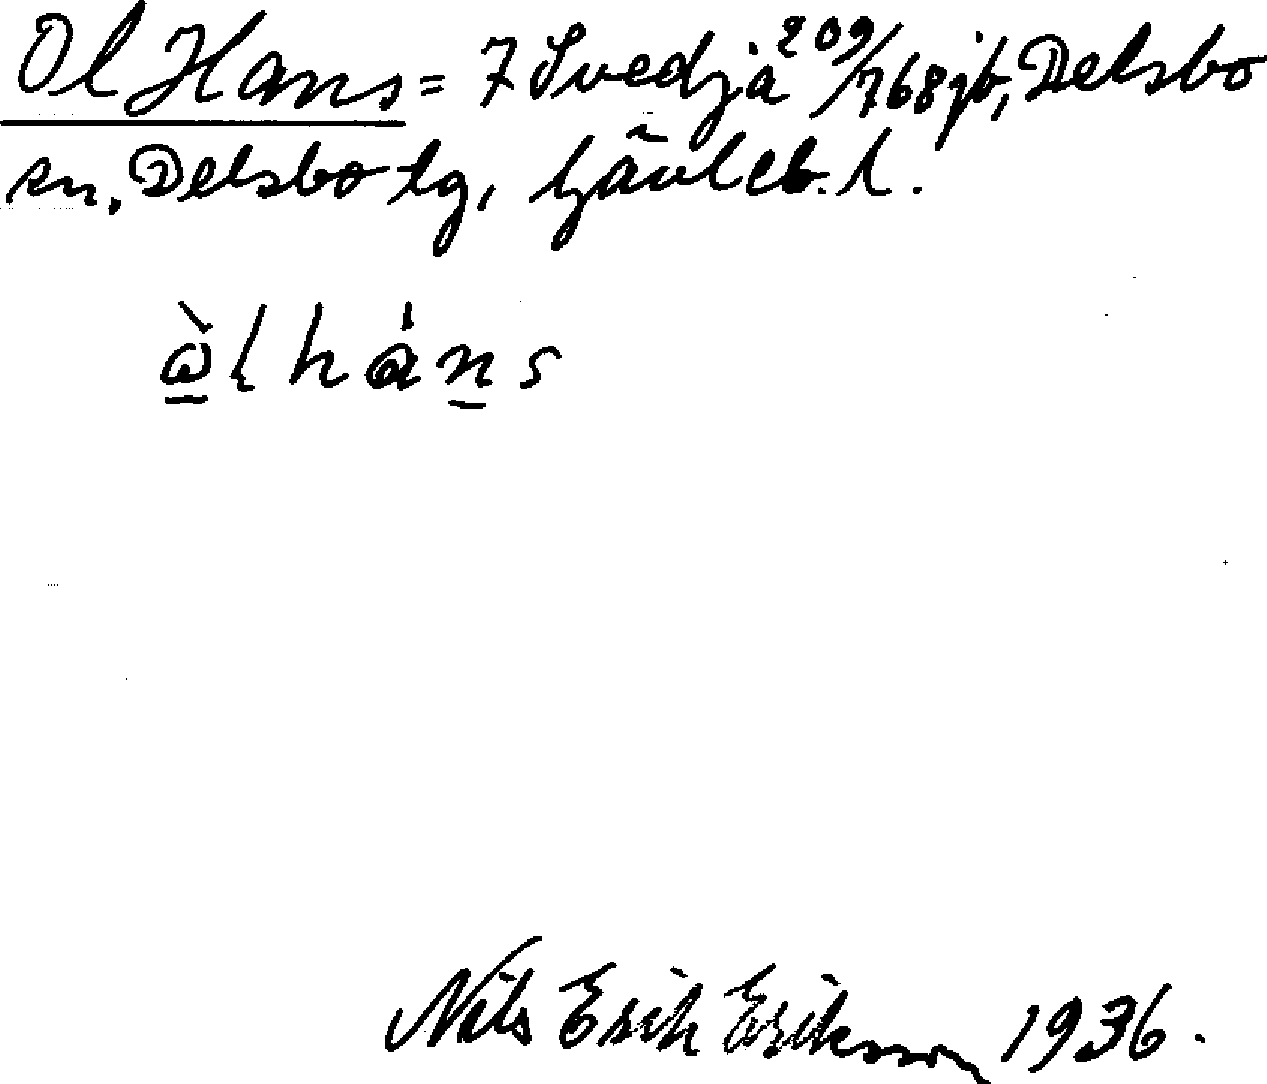 Ol Hans = 7 Svedja 209/768 jb, Delsbo
sn, Delsbo tg, Gävleb. l.
àlháns
Nils Erik Eriksson 1936.